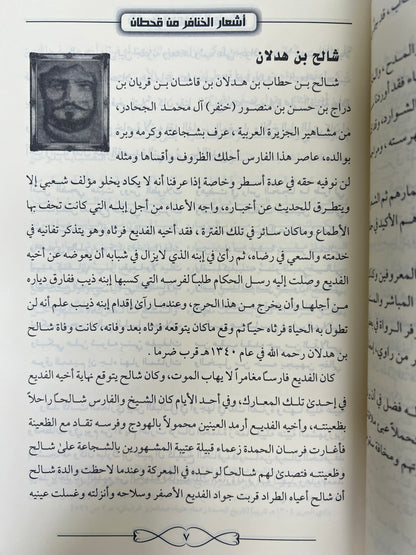 أشعار الخنافر من قحطان
شالح بن هدلان
شالح بن حطاب بن هدلان بن قاشان بن قريان بن
دراج بن حسن بن منصور (خنفر) آل محمد الجحادر،
من مشاهير الجزيرة العربية ، عرف بشجاعته وكرمه وبره
بوالده، عاصر هذا الفارس أحلك الظروف وأقساها ومثله
لن نوفيه حقه في عدة أسطر وخاصة إذا عرفنا أنه لا يكاد يخلو مؤلف شعبي إلا
ويتطرق للحديث عن أخباره، واجه الأعداء من أجل إبله التي كانت تحف بها
الأطماع وماكان سائر في تلك الفترة ، فقد أخيه الفديع فرثاه وهو يتذكر تفانيه في
خدمته والسعي في رضاه، ثم رأى في إبنه الذي لايزال في شبابه أن يعوضه عن أخيه
الفديع وصلت إليه رسل الحكام طلبا لفرسه التي كسبها إبنه ذيب ففارق دياره
من أجلها وأن يخرج من هذا الحرج، وعندما رأى إقدام إبنه ذيب علم أنه لن
تطول به الحياة فرثاه حياً ثم وقع ماكان يتوقعه فرثاه بعد وفاته، كانت وفاة شالح
بن هدلان رحمه الله في عام ١٣٤٠هـ قرب ضرما .
كان الفديع فارساً مغامراً لا يهاب الموت، وكان شالح يتوقع نهاية أخيه الفديع
في إحدى تلك المعارك، وفي أحد الأيام كان الشيخ والفارس شالح راحلاً
بظعينته، وأخيه الفديع أرمد العينين محمولاً بالهودج وفرسه تقاد مع الظعينة
فأغارت فرسان الحمدة زعماء قبيلة عتيبة المشهورين بالشجاعة على شالح
وظعينته فتصدى لهم شالحاً لوحده في المعركة وعندما لاحظت والدة شالح
أن شالح أعياه الطراد قربت جواد الفديع الأصفر وسلاحه وأنزلته وغسلت عينيه
٧